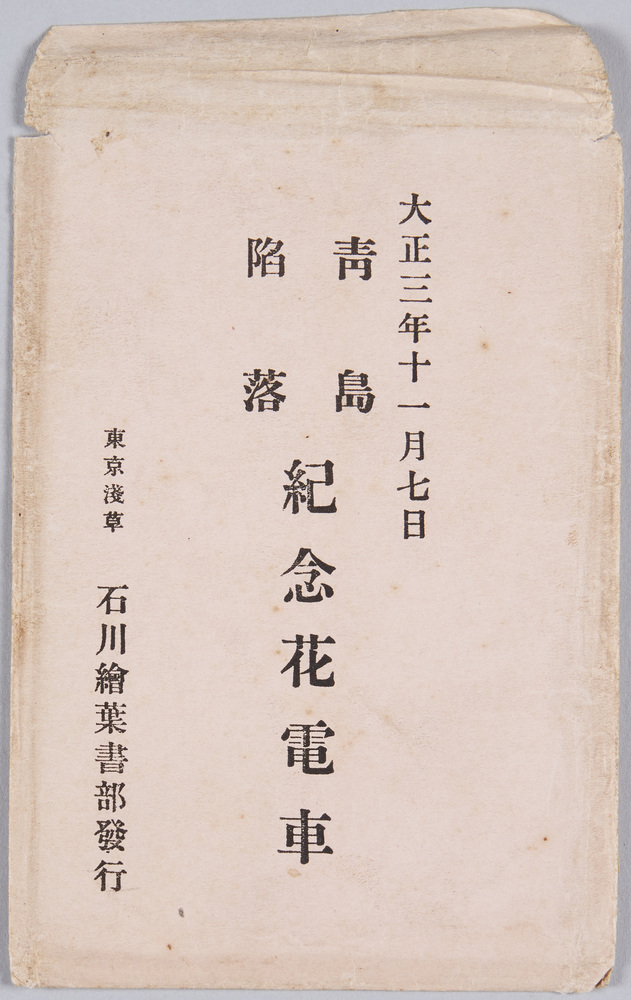 大正三年十一月七日
靑島
陷落
紀念花電車
東京淺草
石川繪葉書部發行